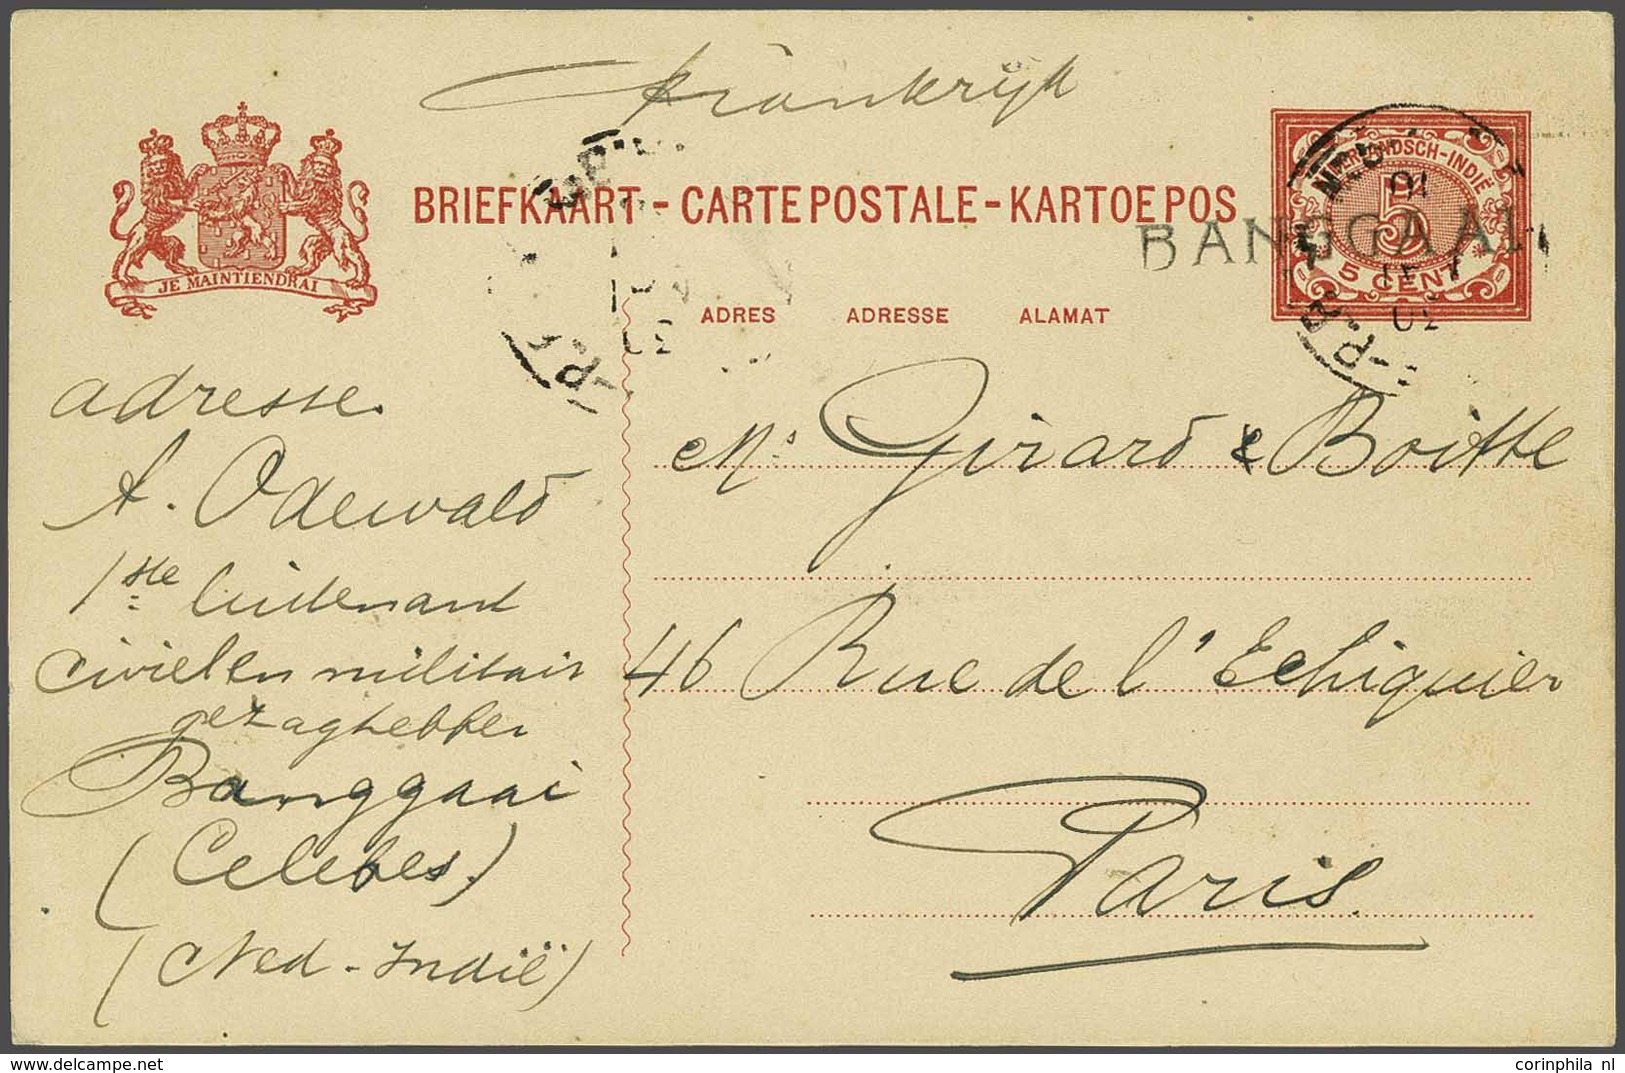 Frankrijk
BRIEFKAART-CARTE POSTALE-KARTOE POS
JE MAINTIENDRAI
NEDERLANDSCH-INDIË
5
5 CENT
BANGGAAI
ADRES ADRESSE ALAMAT
adresse.
A. Odewald
1ste luidenand
civiel en militair
gezaghebber
Banggaai
(Celebes.)
(Ned-Indië)
Ms. Girard & Boitte
46 Rue de l'Echiquier
Paris
www.delcampe.net
corinphila nl